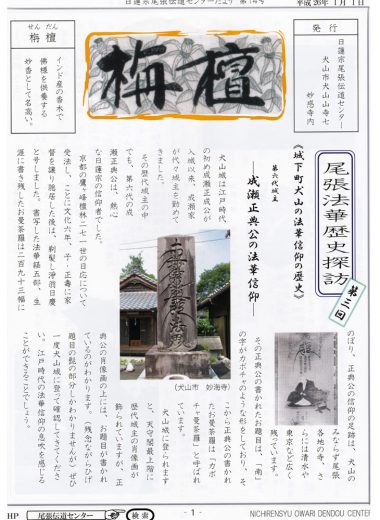 日蓮宗尾張伝道センターだより 第14号
平成26年 1月 1日
発行
日蓮宗尾張伝道センター
犬山市犬山山寺七
妙感寺内
栴檀
せん だん
栴檀
インド産の香木で
佛様を供養する
妙香として名高い。
尾張法華歴史探訪
第二回
《城下町犬山の法華信仰の歴史》
第六代城主
―成瀬正典公の法華信仰―
犬山城は江戸時代
の初め成瀬正成公が
入城以来、成瀬家
が代々城主を勤めて
きました。
その歴代城主の中
でも、第六代の成
瀬正典公は、熱心
な日蓮宗の信仰者でした。
京都の鷹ヶ峰檀林二七一世の日応について
受法し、ことに文化六年、子・正壽に家
督を譲り隠居した後は、剃髪し浄翁日慶
と号しました。書写した法華経五部、生
涯に書き残したお曼荼羅は二百九十三幅に
(犬山市 妙海寺)
のぼり、正典公の信仰の足跡は、犬山の
みならず尾張
各地の寺、さ
らには清水や
東京など広く
残っています。
その正典公の書かれたお題目は、「南」
の字がカボチャのような形をしており、そ
こから正典公の書かれ
たお曼荼羅は「カボ
チャ曼荼羅」と呼ばれ
ています。
犬山城に登られます
と、天守閣最上階に
歴代城主の肖像画が
飾られていますが、正
典公の肖像画の上には、お題目が書かれ
ているのがわかります。(残念ながらひげ
題目の髭の部分しかわかりませんが)ぜひ
一度犬山城に登って確認してみてくださ
い。江戸時代の法華信仰の息吹を感じる
ことができることでしょう。
- 1 -
HP
尾張伝道センター
検索
NICHIRENSYU OWARI DENDOU CENTE